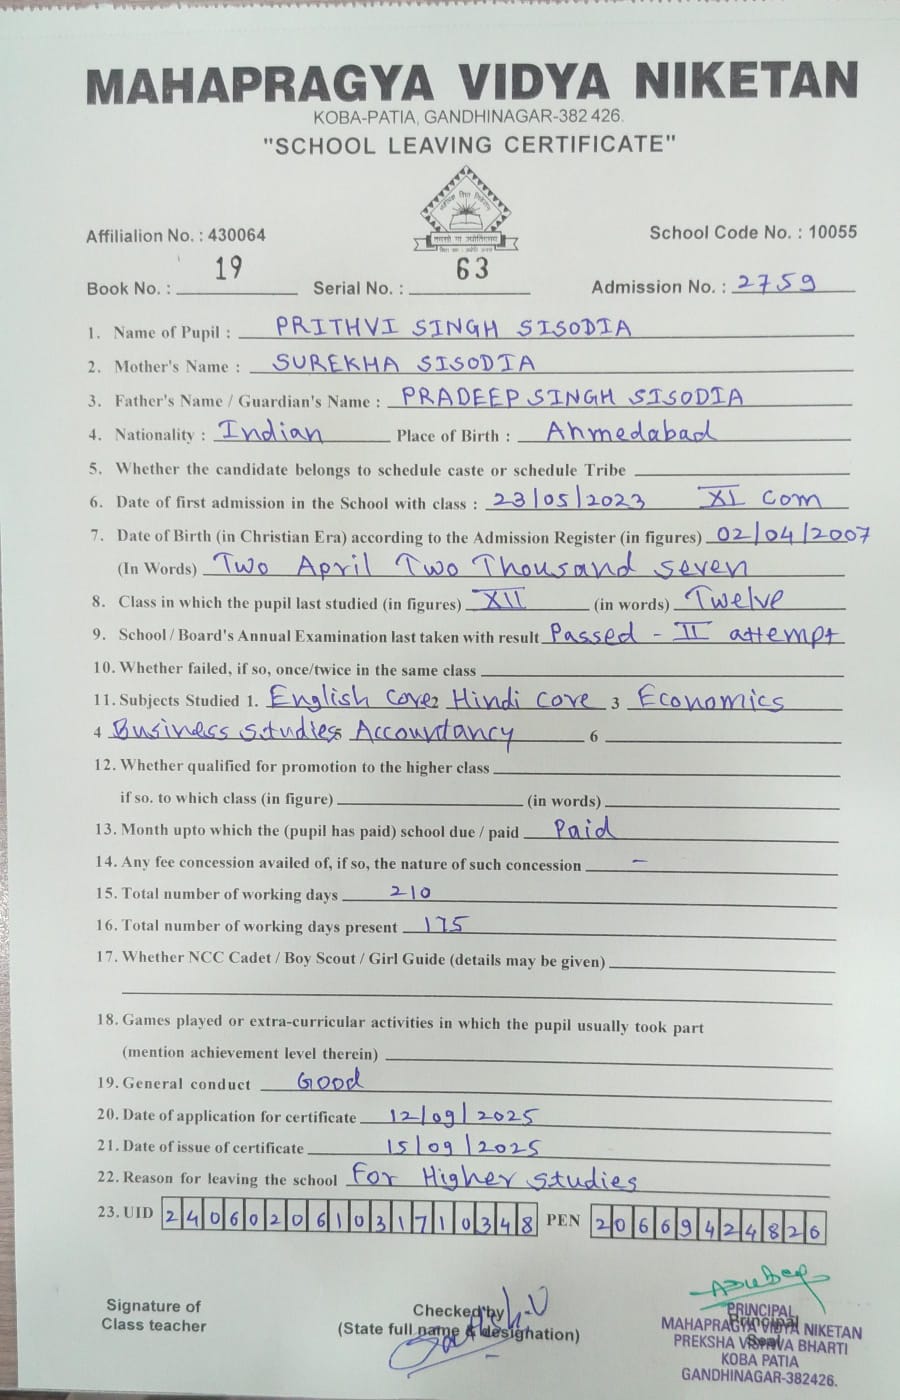 MAHAPRAGYA VIDYA NIKETAN
KOBA-PATIA, GANDHINAGAR-382 426.
"SCHOOL LEAVING CERTIFICATE"
Affilialion No. : 430064
School Code No. : 10055
Book No. : 19 Serial No. : 63 Admission No. : 2759
1. Name of Pupil : PRITHVI SINGH SISODIA
2. Mother's Name : SUREKHA SISODIA
3. Father's Name / Guardian's Name : PRADEEP SINGH SISODIA
4. Nationality : Indian Place of Birth : Ahmedabad
5. Whether the candidate belongs to schedule caste or schedule Tribe
6. Date of first admission in the School with class : 23/05/2023 XI Com
7. Date of Birth (in Christian Era) according to the Admission Register (in figures) 02/04/2007
(In Words) Two April Two Thousand seven
8. Class in which the pupil last studied (in figures) XII (in words) Twelve
9. School / Board's Annual Examination last taken with result Passed - II attempt
10. Whether failed, if so, once/twice in the same class
11. Subjects Studied 1. English Core 2 Hindi Core 3 Economics
4 Business Studies 5 Accountancy 6
12. Whether qualified for promotion to the higher class
if so. to which class (in figure) (in words)
13. Month upto which the (pupil has paid) school due / paid Paid
14. Any fee concession availed of, if so, the nature of such concession -
15. Total number of working days 210
16. Total number of working days present 175
17. Whether NCC Cadet / Boy Scout / Girl Guide (details may be given)
18. Games played or extra-curricular activities in which the pupil usually took part
(mention achievement level therein)
19. General conduct Good
20. Date of application for certificate 12/09/2025
21. Date of issue of certificate 15/09/2025
22. Reason for leaving the school For Higher studies
23. UID 240602061031710348 PEN 20669424826
Signature of
Class teacher
Checked by
(State full name & designation)
Principal
Seal
PRINCIPAL
MAHAPRAGYA VIDYA NIKETAN
PREKSHA VISHVA BHARTI
KOBA PATIA
GANDHINAGAR-382426.